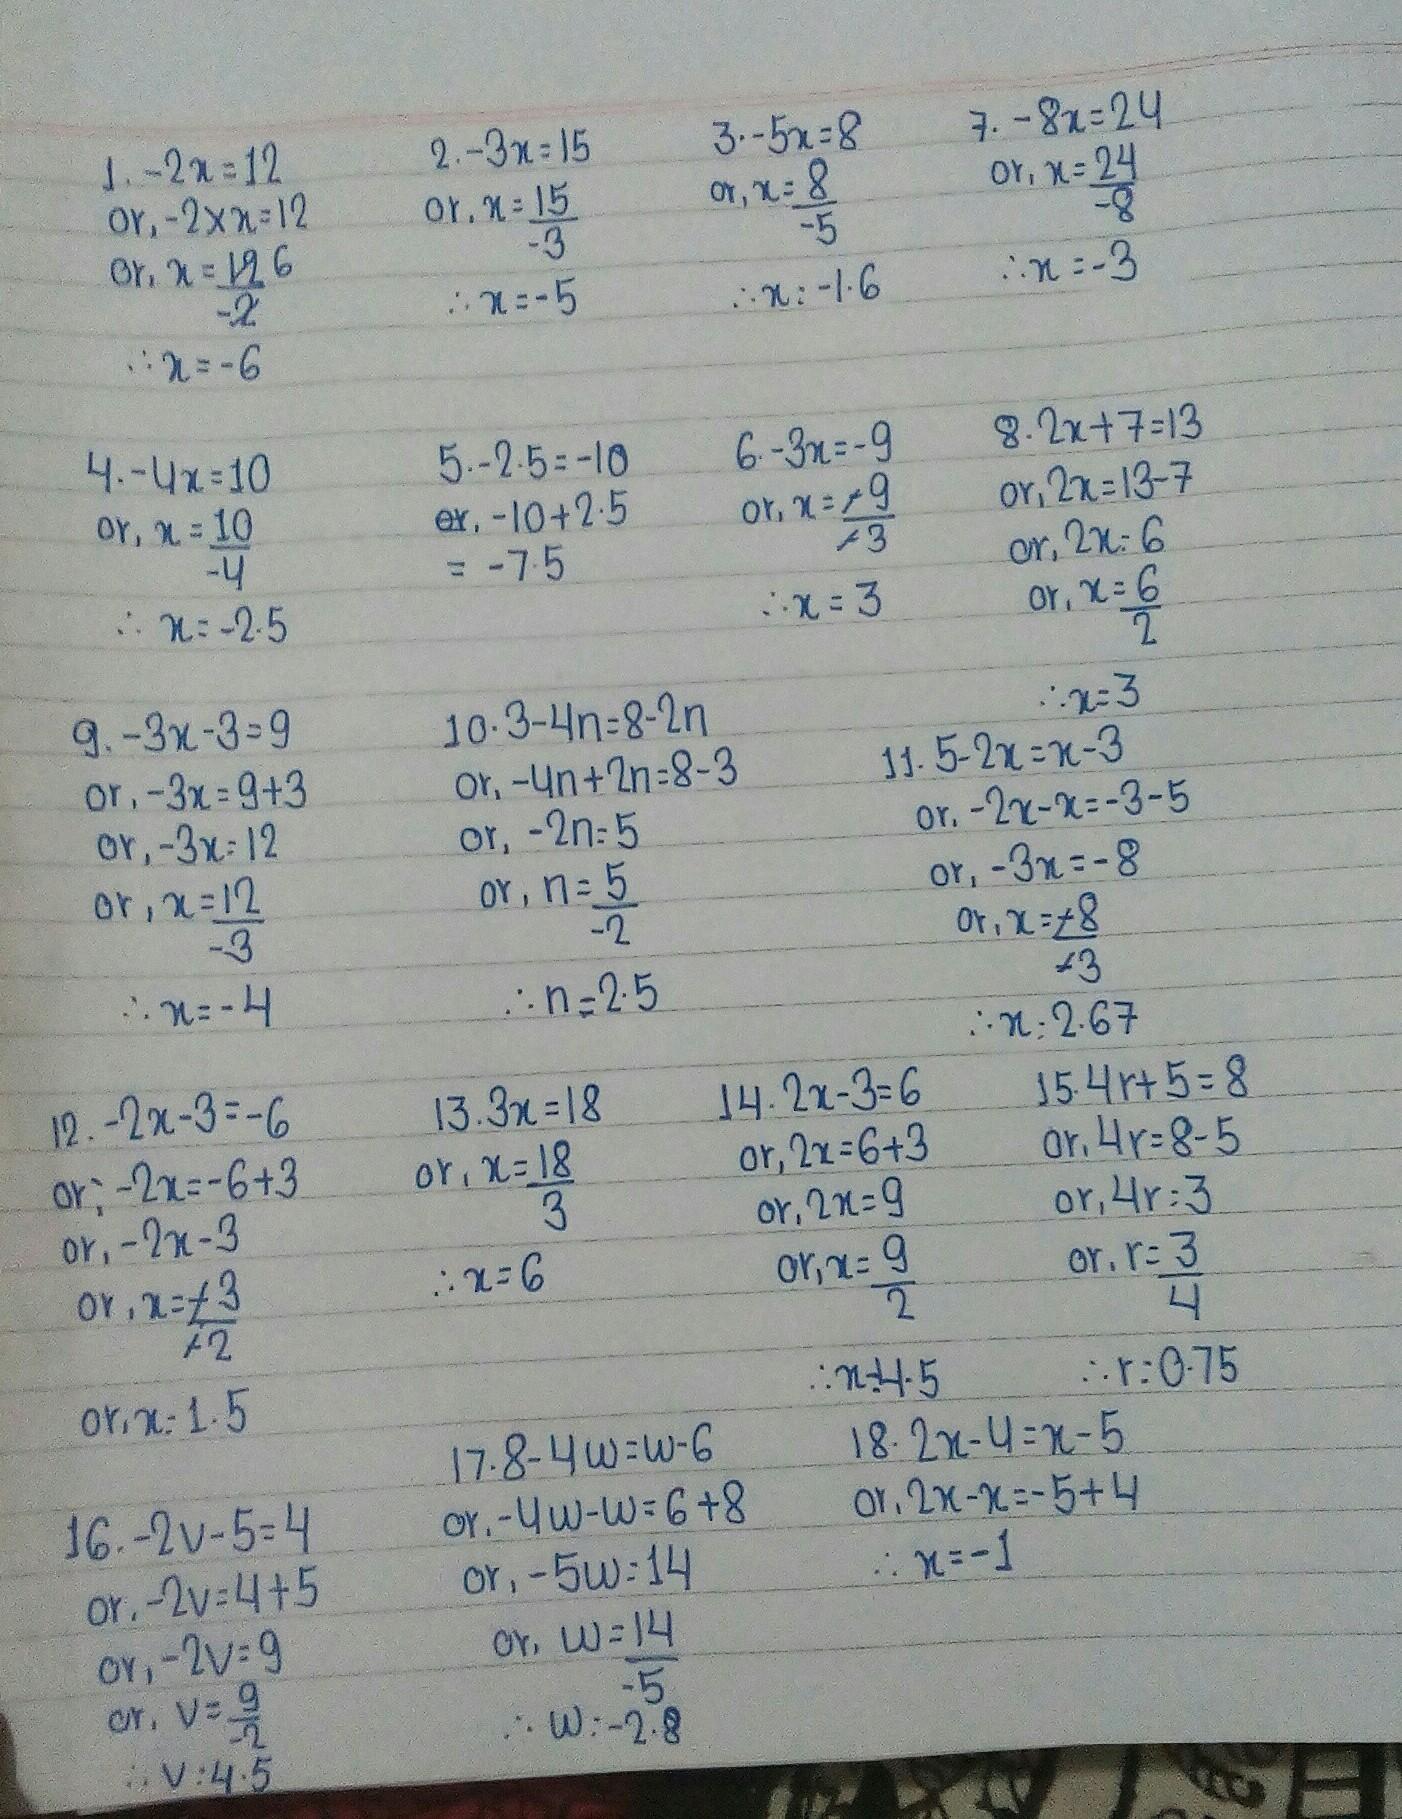 1. -2x=12
or, -2×x=12
or, x=12/-2 6
∴x=-6
2. -3x=15
or, x=15/-3
∴x=-5
3. -5x=8
or, x=8/-5
∴x=-1.6
7. -8x=24
or, x=24/-8
∴x=-3
4. -4x=10
or, x=10/-4
∴x=-2.5
5. -2.5=-10
or, -10+2.5
= -7.5
6. -3x=-9
or, x=-9/-3
∴x=3
8. 2x+7=13
or, 2x=13-7
or, 2x=6
or, x=6/2
∴x=3
9. -3x-3=9
or, -3x=9+3
or, -3x=12
or, x=12/-3
∴x=-4
10. 3-4n=8-2n
or, -4n+2n=8-3
or, -2n=5
or, n=5/-2
∴n=2.5
11. 5-2x=x-3
or, -2x-x=-3-5
or, -3x=-8
or, x=-8/-3
∴x=2.67
12. -2x-3=-6
or, -2x=-6+3
or, -2x-3
or, x=-3/-2
or, x=1.5
13. 3x=18
or, x=18/3
∴x=6
14. 2x-3=6
or, 2x=6+3
or, 2x=9
or, x=9/2
∴x=4.5
15. 4r+5=8
or, 4r=8-5
or, 4r=3
or, r=3/4
∴r=0.75
16. -2v-5=4
or, -2v=4+5
or, -2v=9
or, v=9/-2
∴v=4.5
17. 8-4w=w-6
or, -4w-w=6+8
or, -5w=14
or, w=14/-5
∴w=-2.8
18. 2x-4=x-5
or, 2x-x=-5+4
∴x=-1